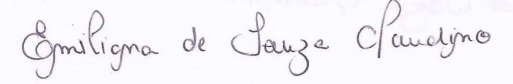 Emiligna de Souza Claudino